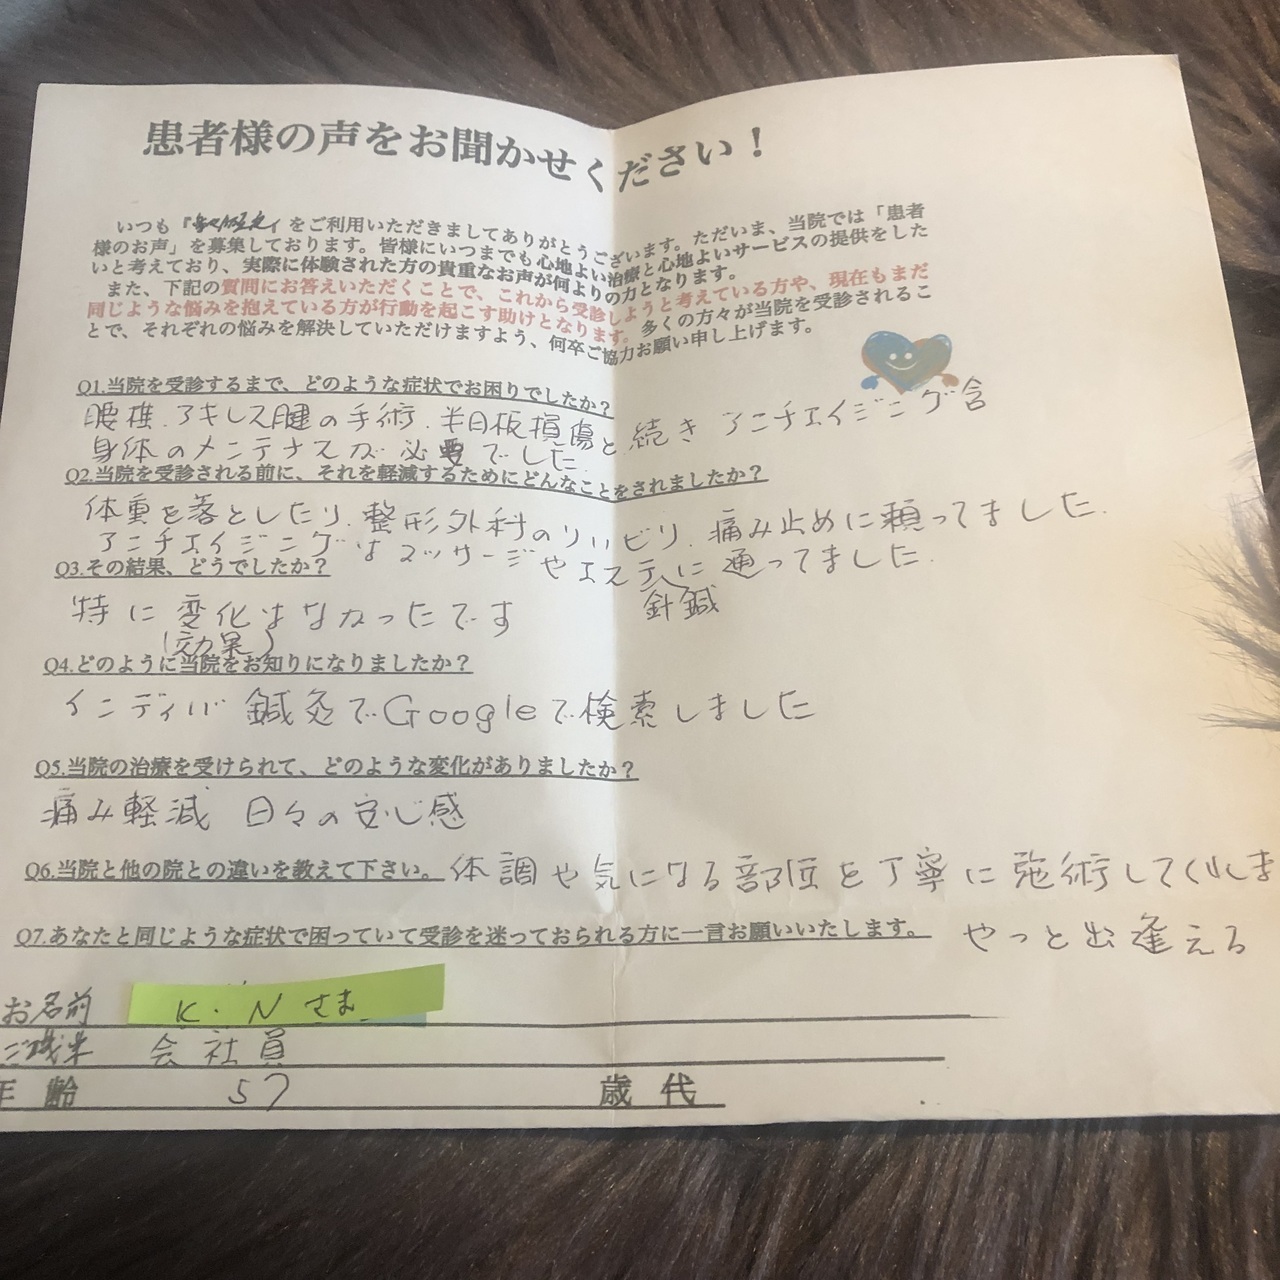 患者様の声をお聞かせください！
いつも『』をご利用いただきましてありがとうございます。ただいま、当院では「患者
様のお声」を募集しております。皆様にいつまでも心地よい治療と心地よいサービスの提供をした
いと考えており、実際に体験された方の貴重なお声が何よりの力となります。
また、下記の質問にお答えいただくことで、これから受診しようと考えている方や、現在もまだ
同じような悩みを抱えている方が行動を起こす助けとなります。多くの方々が当院を受診されるこ
とで、それぞれの悩みを解決していただけますよう、何卒ご協力お願い申し上げます。
Q1.当院を受診するまで、どのような症状でお困りでしたか？
腰椎.アキレス腱の手術.半月板損傷と続き アンチエイジング含
身体のメンテナスが必要でした.
Q2.当院を受診される前に、それを軽減するためにどんなことをされましたか？
体重を落としたり.整形外科のリハビリ.痛み止めに頼ってました.
アンチエイジングはマッサージやエステに通ってました.
針鍼
Q3.その結果、どうでしたか？
特に変化はなかったです
(効果)
Q4.どのように当院をお知りになりましたか？
インディバ 鍼灸でGoogleで検索しました
Q5.当院の治療を受けられて、どのような変化がありましたか？
痛み軽減 日々の安心感
Q6.当院と他の院との違いを教えて下さい。体調や気になる部位を丁寧に施術してくれしま
Q7.あなたと同じような症状で困っていて受診を迷っておられる方に一言お願いいたします。 やっと出逢える
お名前 K・Nさま
ご職業 会社員
年齢 57 歳代